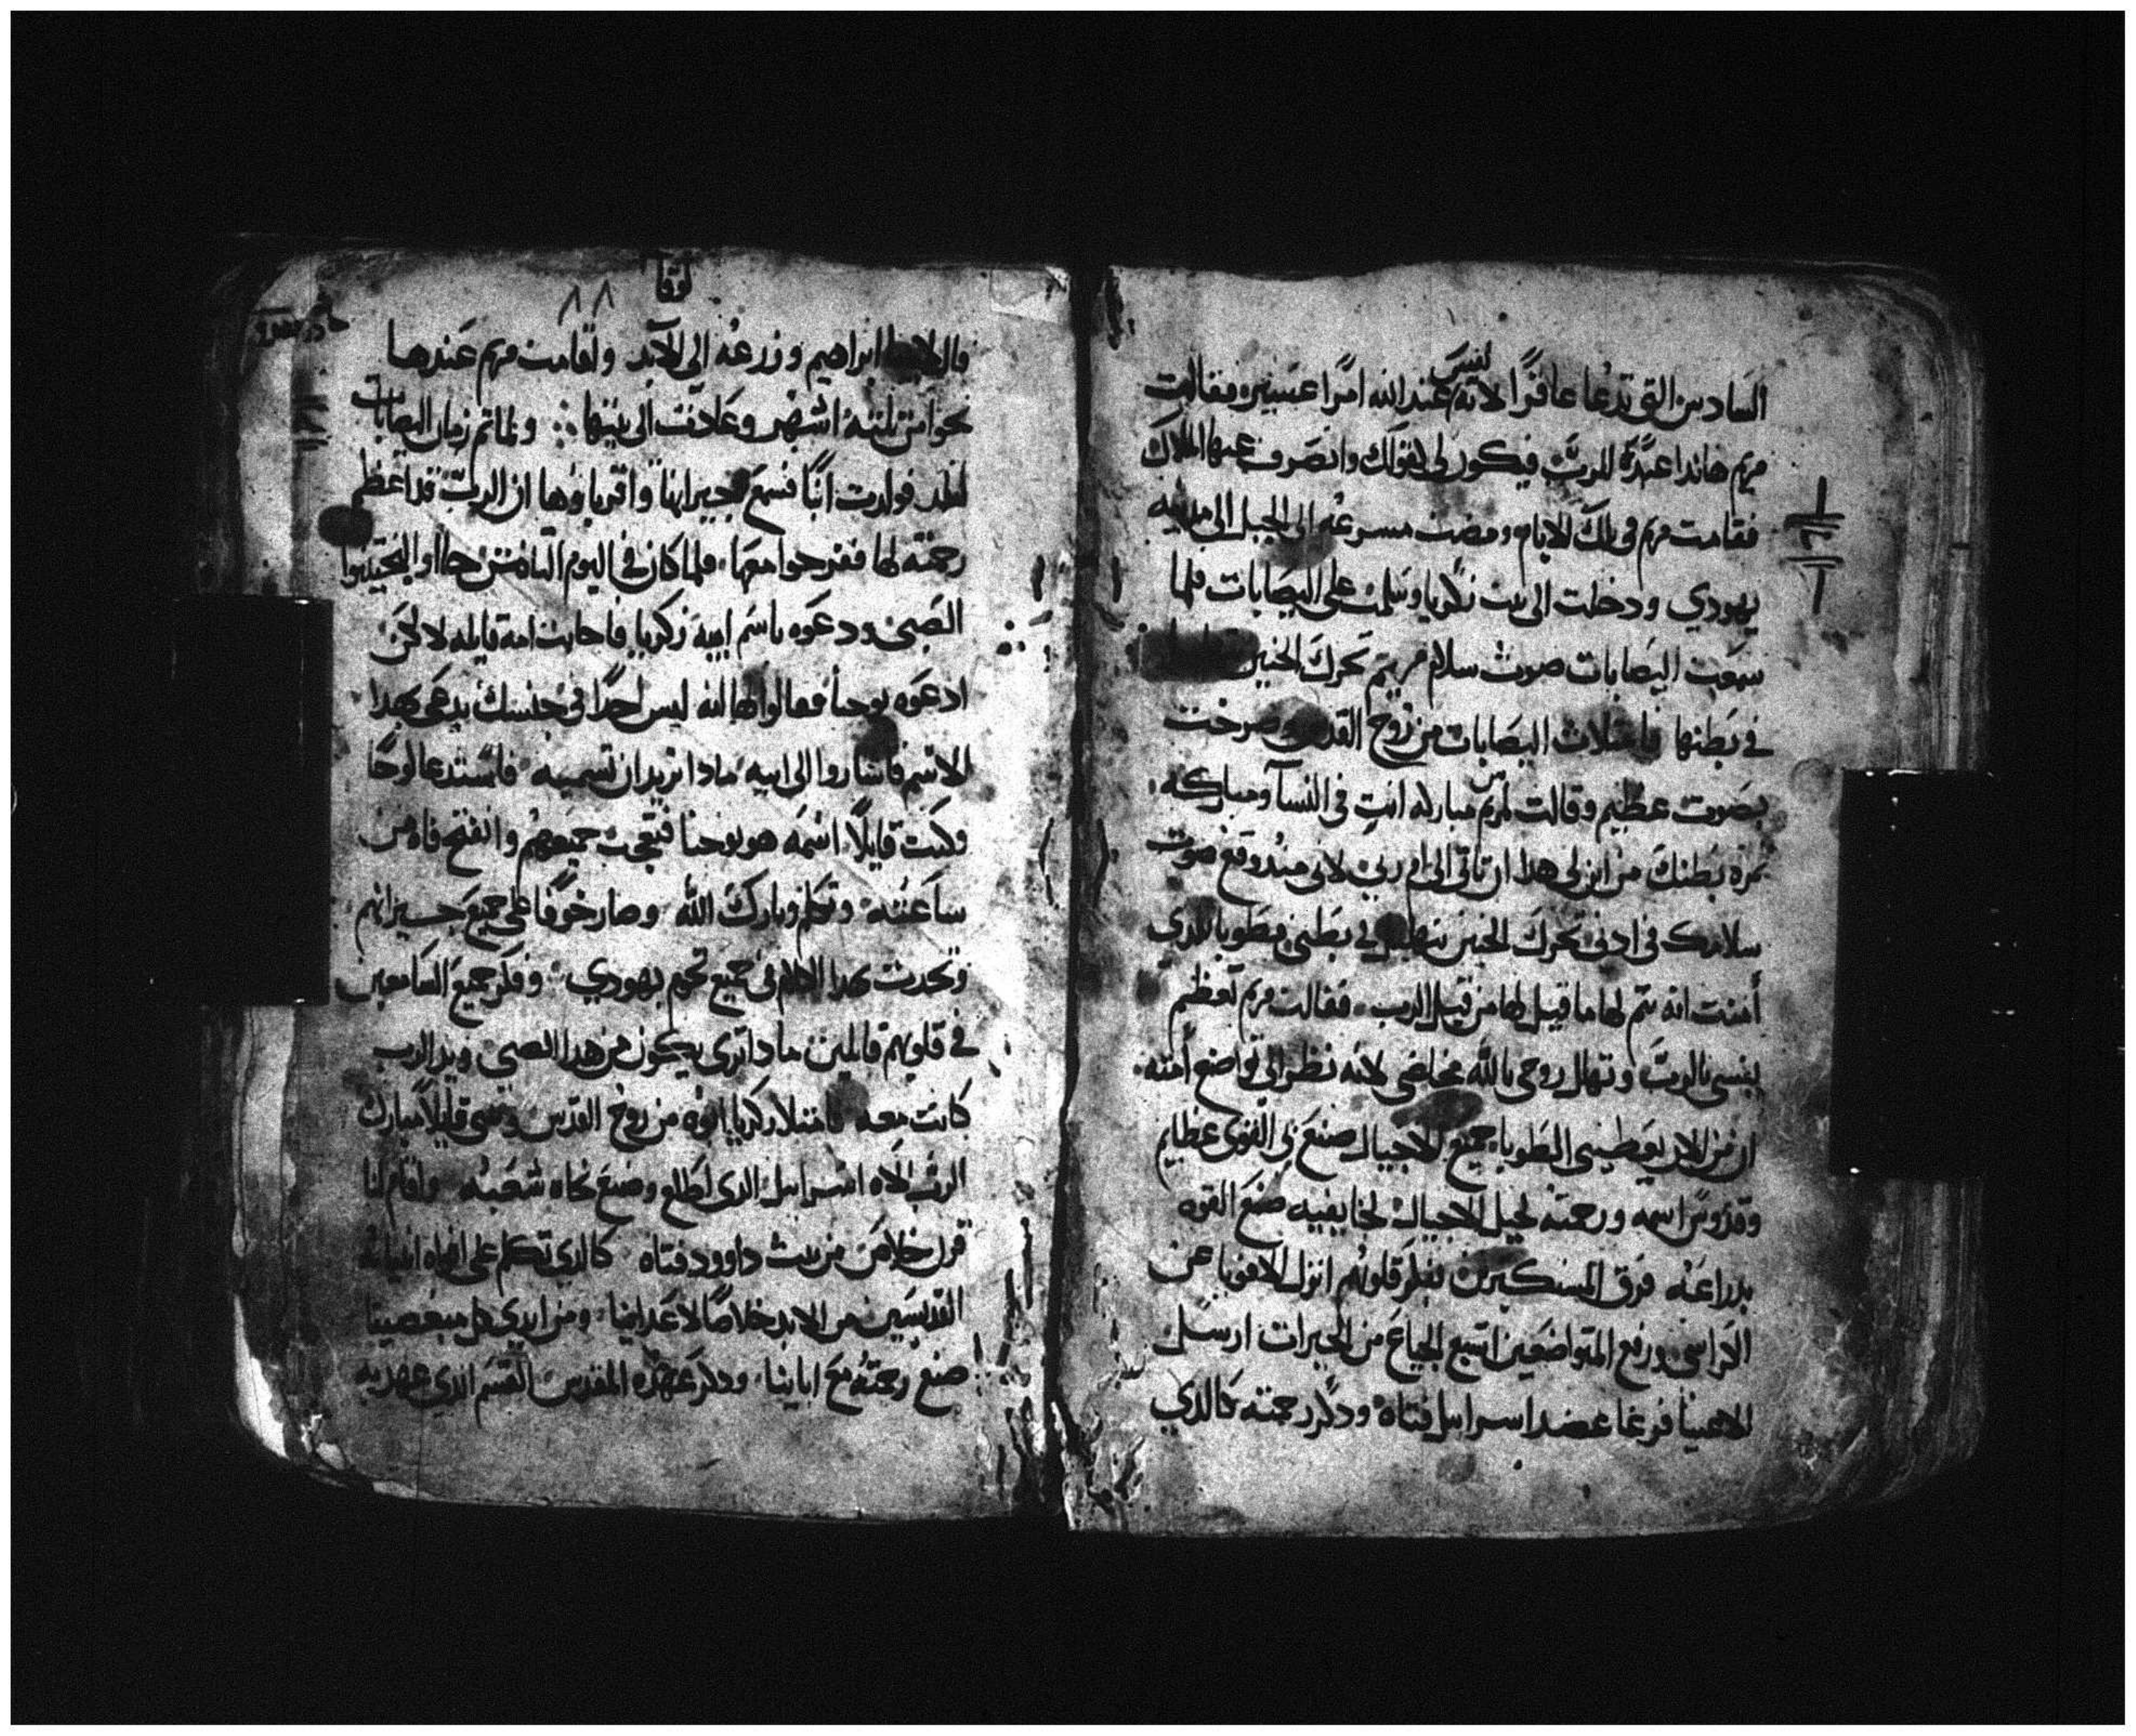 السادس التي تدعا عاقرًا لانه ليس عند الله امرًا عسير فقالت
مريم هانذا عبدة للرب فيكون لي كقولك وانصرف عنها الملاك
فقامت مريم في تلك الايام ومضت مسرعه الى الجبل الى مدينه
يهودي ودخلت الى بيت زكريا وسلمت على اليصابات فلما
سمعت اليصابات صوت سلام مريم تحرك الجنين
في بطنها وامتلات اليصابات من روح القدس وصرخت
بصوت عظيم وقالت لمريم مباركه انتِ في النسآ ومباركه
ثمرة بطنك من اين لي هدا ان تاتي الي ام ربي لاني مند وقع صوت
سلامك في ادني تحرك الجنين بتهليل في بطني فطوبا للدي
أمنت انه يتم لها ما قيل لها من قبل الرب فقالت مريم تعظم
نفسي بالرب وتهلل روحي بالله مخلصي لانه نظر الى تواضع امته
ان من الان يعطيني الطوبا جميع الاجيال صنع بي القوي عظايم
وقدوسًا اسمه ورحمته لجيل الاجيال لخايفيه صنع القوه
بدراعه فرق المستكبرين بفكر قلوبهم انزل الاقويا عن
الكراسي ورفع المتواضعين اشبع الجياع من الخيرات ارسل
الاغنيا فرغا عضد اسراييل فتاه ودكر رحمته كالدي
لوقا
٨٨
قال لابينا ابراهيم وزرعه الى الابد واقامت مريم عندها
نحوا من تلتة اشهر وعادت الى بيتها ولما تم زمان اليصابات
لتلد فولدت ابنًا فسمع جيرانها واقرباوها ان الرب قد اعظم
رحمته لها ففرحوا معها فلما كان في اليوم التامن جااوا ليختنوا
الصبي ودعوه باسم ابيه زكريا فاجابت امه قايله لا لكن
ادعوه يوحنا فقالوا لها انه ليس احدًا في جنسك يدعى بهدا
الاسم فاشاروا الى ابيه مادا تريد ان تسميه فاستدعا لوحًا
وكتب قايلًا اسمه هو يوحنا فتعجب جميعهم وانفتح فاه من
ساعته وتكلم وبارك الله وصار خوفًا على جميع جيرانهم
وتحدت بهدا الكلام في جميع تخوم يهودي وفكر جميع السامعين
في قلوبهم قايلين مادا ترى يكون من هدا الصبي ويد الرب
كانت معه فامتلا زكريا ابوه من روح القدس وتنبى قايلًا مبارك
الرب الاه اسراييل الدي اطلع وصنع نجاه شعبه واقام لنا
قرن خلاص من بيت داوود فتاه كالدي تكلم على افواه انبيائه
القديسين من الابد خلاصًا لاعداينا ومن ايدي كل مبغضينا
صنع رحمته مع اباينا ودكر عهده المقدس القسم الدي عهد به